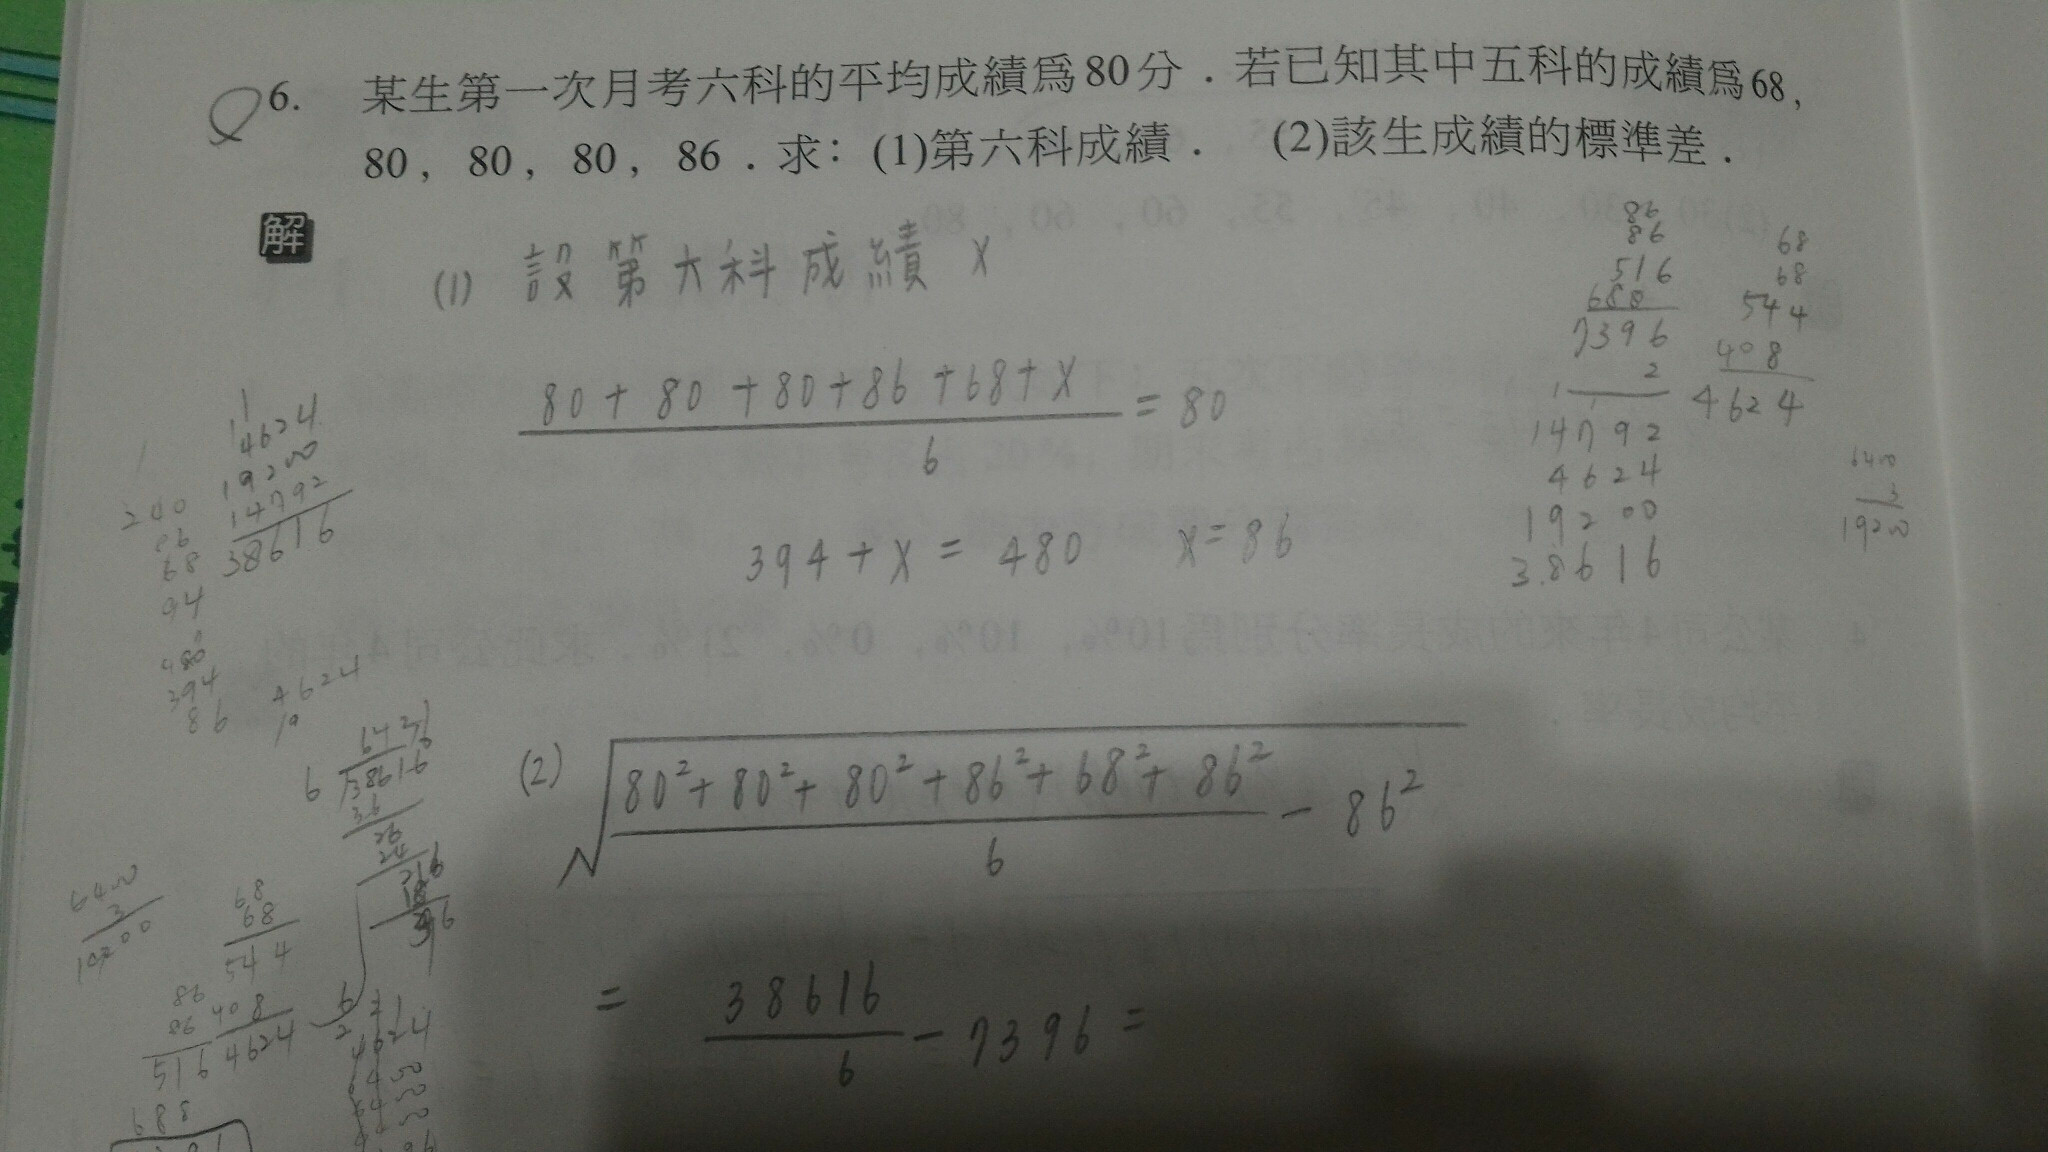 6. 某生第一次月考六科的平均成績為80分．若已知其中五科的成績為68，
80，80，80，86．求：(1)第六科成績． (2)該生成績的標準差．
解
(1) 設第六科成績 x
80 + 80 + 80 + 86 + 68 + x
6
= 80
394 + x = 480 x = 86
(2) √
80² + 80² + 80² + 86² + 68² + 86²
6
- 86²
=
38616
6
- 7396 =
86
86
516
688
7396
2
14792
4624
19200
38616
68
68
544
408
4624
6400
3
19200
4624
19200
14792
38616
240
86
68
94
480
394
86
4624
19
6
38616
36
26
24
6400
3
19200
68
68
544
408
4624
86
86
516
688